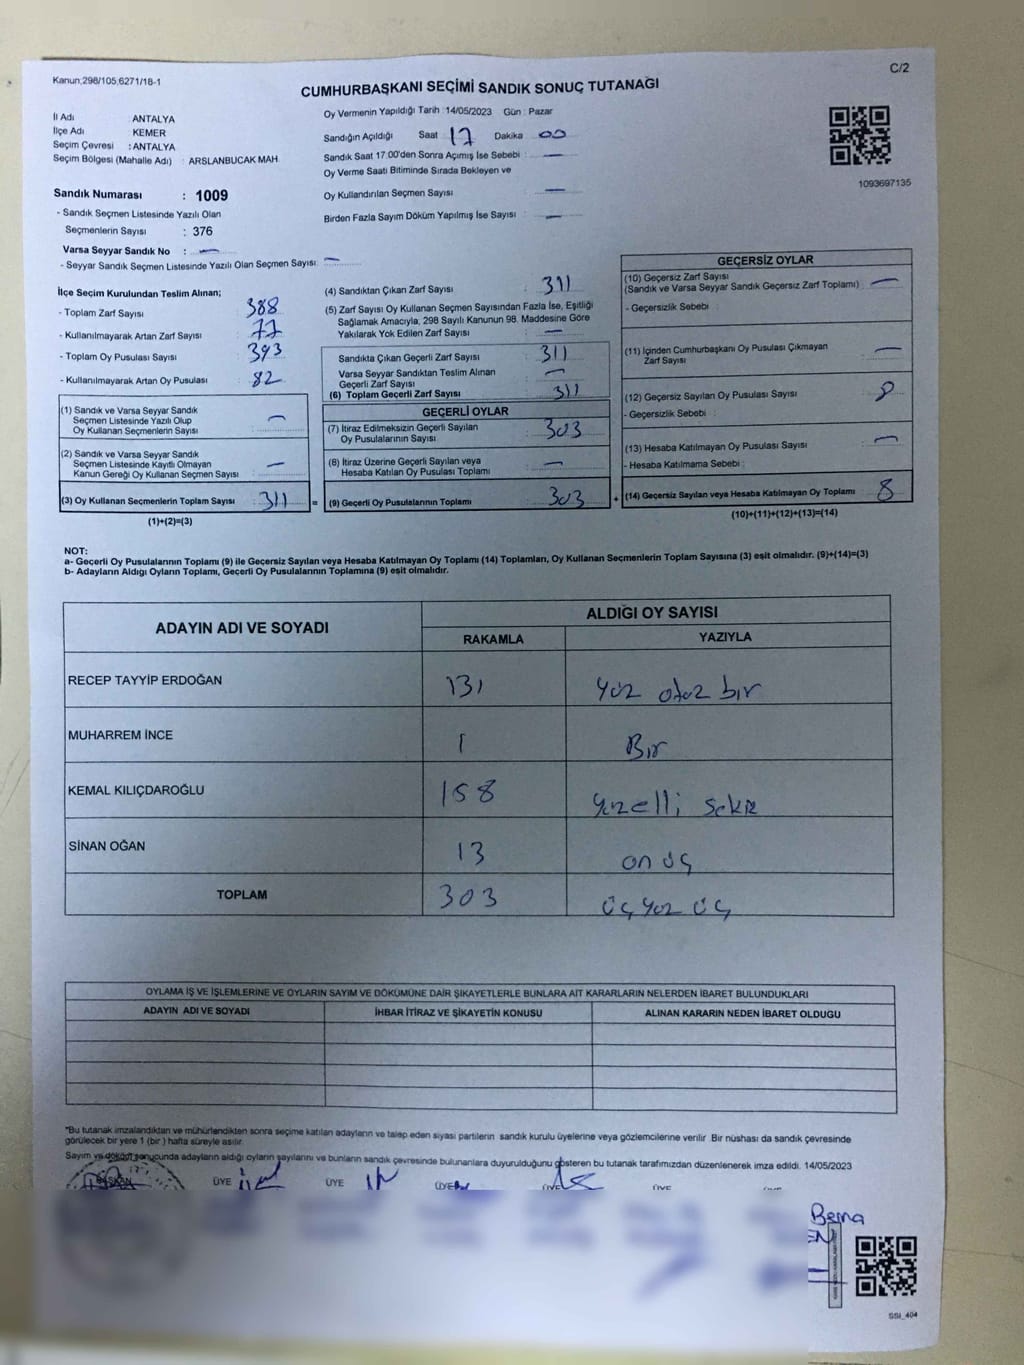 Kanun;298/105,6271/18-1
C/2
CUMHURBAŞKANI SEÇİMİ SANDIK SONUÇ TUTANAĞI
İl Adı ANTALYA
İlçe Adı KEMER
Seçim Çevresi : ANTALYA
Seçim Bölgesi (Mahalle Adı) : ARSLANBUCAK MAH
Sandık Numarası : 1009
- Sandık Seçmen Listesinde Yazılı Olan
Seçmenlerin Sayısı : 376
Varsa Seyyar Sandık No : —
- Seyyar Sandık Seçmen Listesinde Yazılı Olan Seçmen Sayısı: —
Oy Vermenin Yapıldığı Tarih : 14/05/2023 Gün : Pazar
Sandığın Açıldığı Saat 17 Dakika 00
Sandık Saat 17:00'den Sonra Açımış İse Sebebi : —
Oy Verme Saati Bitiminde Sırada Bekleyen ve
Oy Kullandırılan Seçmen Sayısı —
Birden Fazla Sayım Döküm Yapılmış İse Sayısı : —
1093697135
İlçe Seçim Kurulundan Teslim Alınan;
- Toplam Zarf Sayısı 388
- Kullanılmayarak Artan Zarf Sayısı : 77
- Toplam Oy Pusulası Sayısı 393
- Kullanılmayarak Artan Oy Pusulası : 82
(1) Sandık ve Varsa Seyyar Sandık
Seçmen Listesinde Yazılı Olup
Oy Kullanan Seçmenlerin Sayısı : —
(2) Sandık ve Varsa Seyyar Sandık
Seçmen Listesinde Kayıtlı Olmayan
Kanun Gereği Oy Kullanan Seçmen Sayısı : —
(3) Oy Kullanan Seçmenlerin Toplam Sayısı 311 =
(1)+(2)=(3)
(4) Sandıktan Çıkan Zarf Sayısı : 311
(5) Zarf Sayısı Oy Kullanan Seçmen Sayısından Fazla İse, Eşitliği
Sağlamak Amacıyla, 298 Sayılı Kanunun 98. Maddesine Göre
Yakılarak Yok Edilen Zarf Sayısı : —
Sandıkta Çıkan Geçerli Zarf Sayısı : 311
Varsa Seyyar Sandıktan Teslim Alınan
Geçerli Zarf Sayısı : —
(6) Toplam Geçerli Zarf Sayısı 311
GEÇERLİ OYLAR
(7) İtiraz Edilmeksizin Geçerli Sayılan
Oy Pusulalarının Sayısı : 303
(8) İtiraz Üzerine Geçerli Sayılan veya
Hesaba Katılan Oy Pusulası Toplamı : —
(9) Geçerli Oy Pusulalarının Toplamı : 303 +
GEÇERSİZ OYLAR
(10) Geçersiz Zarf Sayısı
(Sandık ve Varsa Seyyar Sandık Geçersiz Zarf Toplamı) : —
- Geçersizlik Sebebi :
(11) İçinden Cumhurbaşkanı Oy Pusulası Çıkmayan
Zarf Sayısı : —
(12) Geçersiz Sayılan Oy Pusulası Sayısı : 8
- Geçersizlik Sebebi :
(13) Hesaba Katılmayan Oy Pusulası Sayısı : —
- Hesaba Katılmama Sebebi :
(14) Geçersiz Sayılan veya Hesaba Katılmayan Oy Toplamı : 8
(10)+(11)+(12)+(13)=(14)
NOT:
a- Geçerli Oy Pusulalarının Toplamı (9) ile Geçersiz Sayılan veya Hesaba Katılmayan Oy Toplamı (14) Toplamları, Oy Kullanan Seçmenlerin Toplam Sayısına (3) eşit olmalıdır. (9)+(14)=(3)
b- Adayların Aldığı Oyların Toplamı, Geçerli Oy Pusulalarının Toplamına (9) eşit olmalıdır.
ADAYIN ADI VE SOYADI ALDIĞI OY SAYISI
RAKAMLA YAZIYLA
RECEP TAYYİP ERDOĞAN 131 Yüz otuz bir
MUHARREM İNCE 1 Bir
KEMAL KILIÇDAROĞLU 158 Yüzelli Sekiz
SİNAN OĞAN 13 on üç
TOPLAM 303 üç yüz üç
OYLAMA İŞ VE İŞLEMLERİNE VE OYLARIN SAYIM VE DÖKÜMÜNE DAİR ŞİKAYETLERLE BUNLARA AİT KARARLARIN NELERDEN İBARET BULUNDUKLARI
ADAYIN ADI VE SOYADI İHBAR İTİRAZ VE ŞİKAYETİN KONUSU ALINAN KARARIN NEDEN İBARET OLDUĞU
*Bu tutanak imzalandıktan ve mühürlendikten sonra seçime katılan adayların ve talep eden siyasi partilerin sandık kurulu üyelerine veya gözlemcilerine verilir Bir nüshası da sandık çevresinde
görülecek bir yere 1 (bir ) hafta süreyle asılır.
Sayım ve döküm sonucunda adayların aldığı oyların sayılarını ve bunların sandık çevresinde bulunanlara duyurulduğunu gösteren bu tutanak tarafımızdan düzenlenerek imza edildi. 14/05/2023
BAŞKAN ÜYE ÜYE ÜYE ÜYE ÜYE
Berna
SSI_404